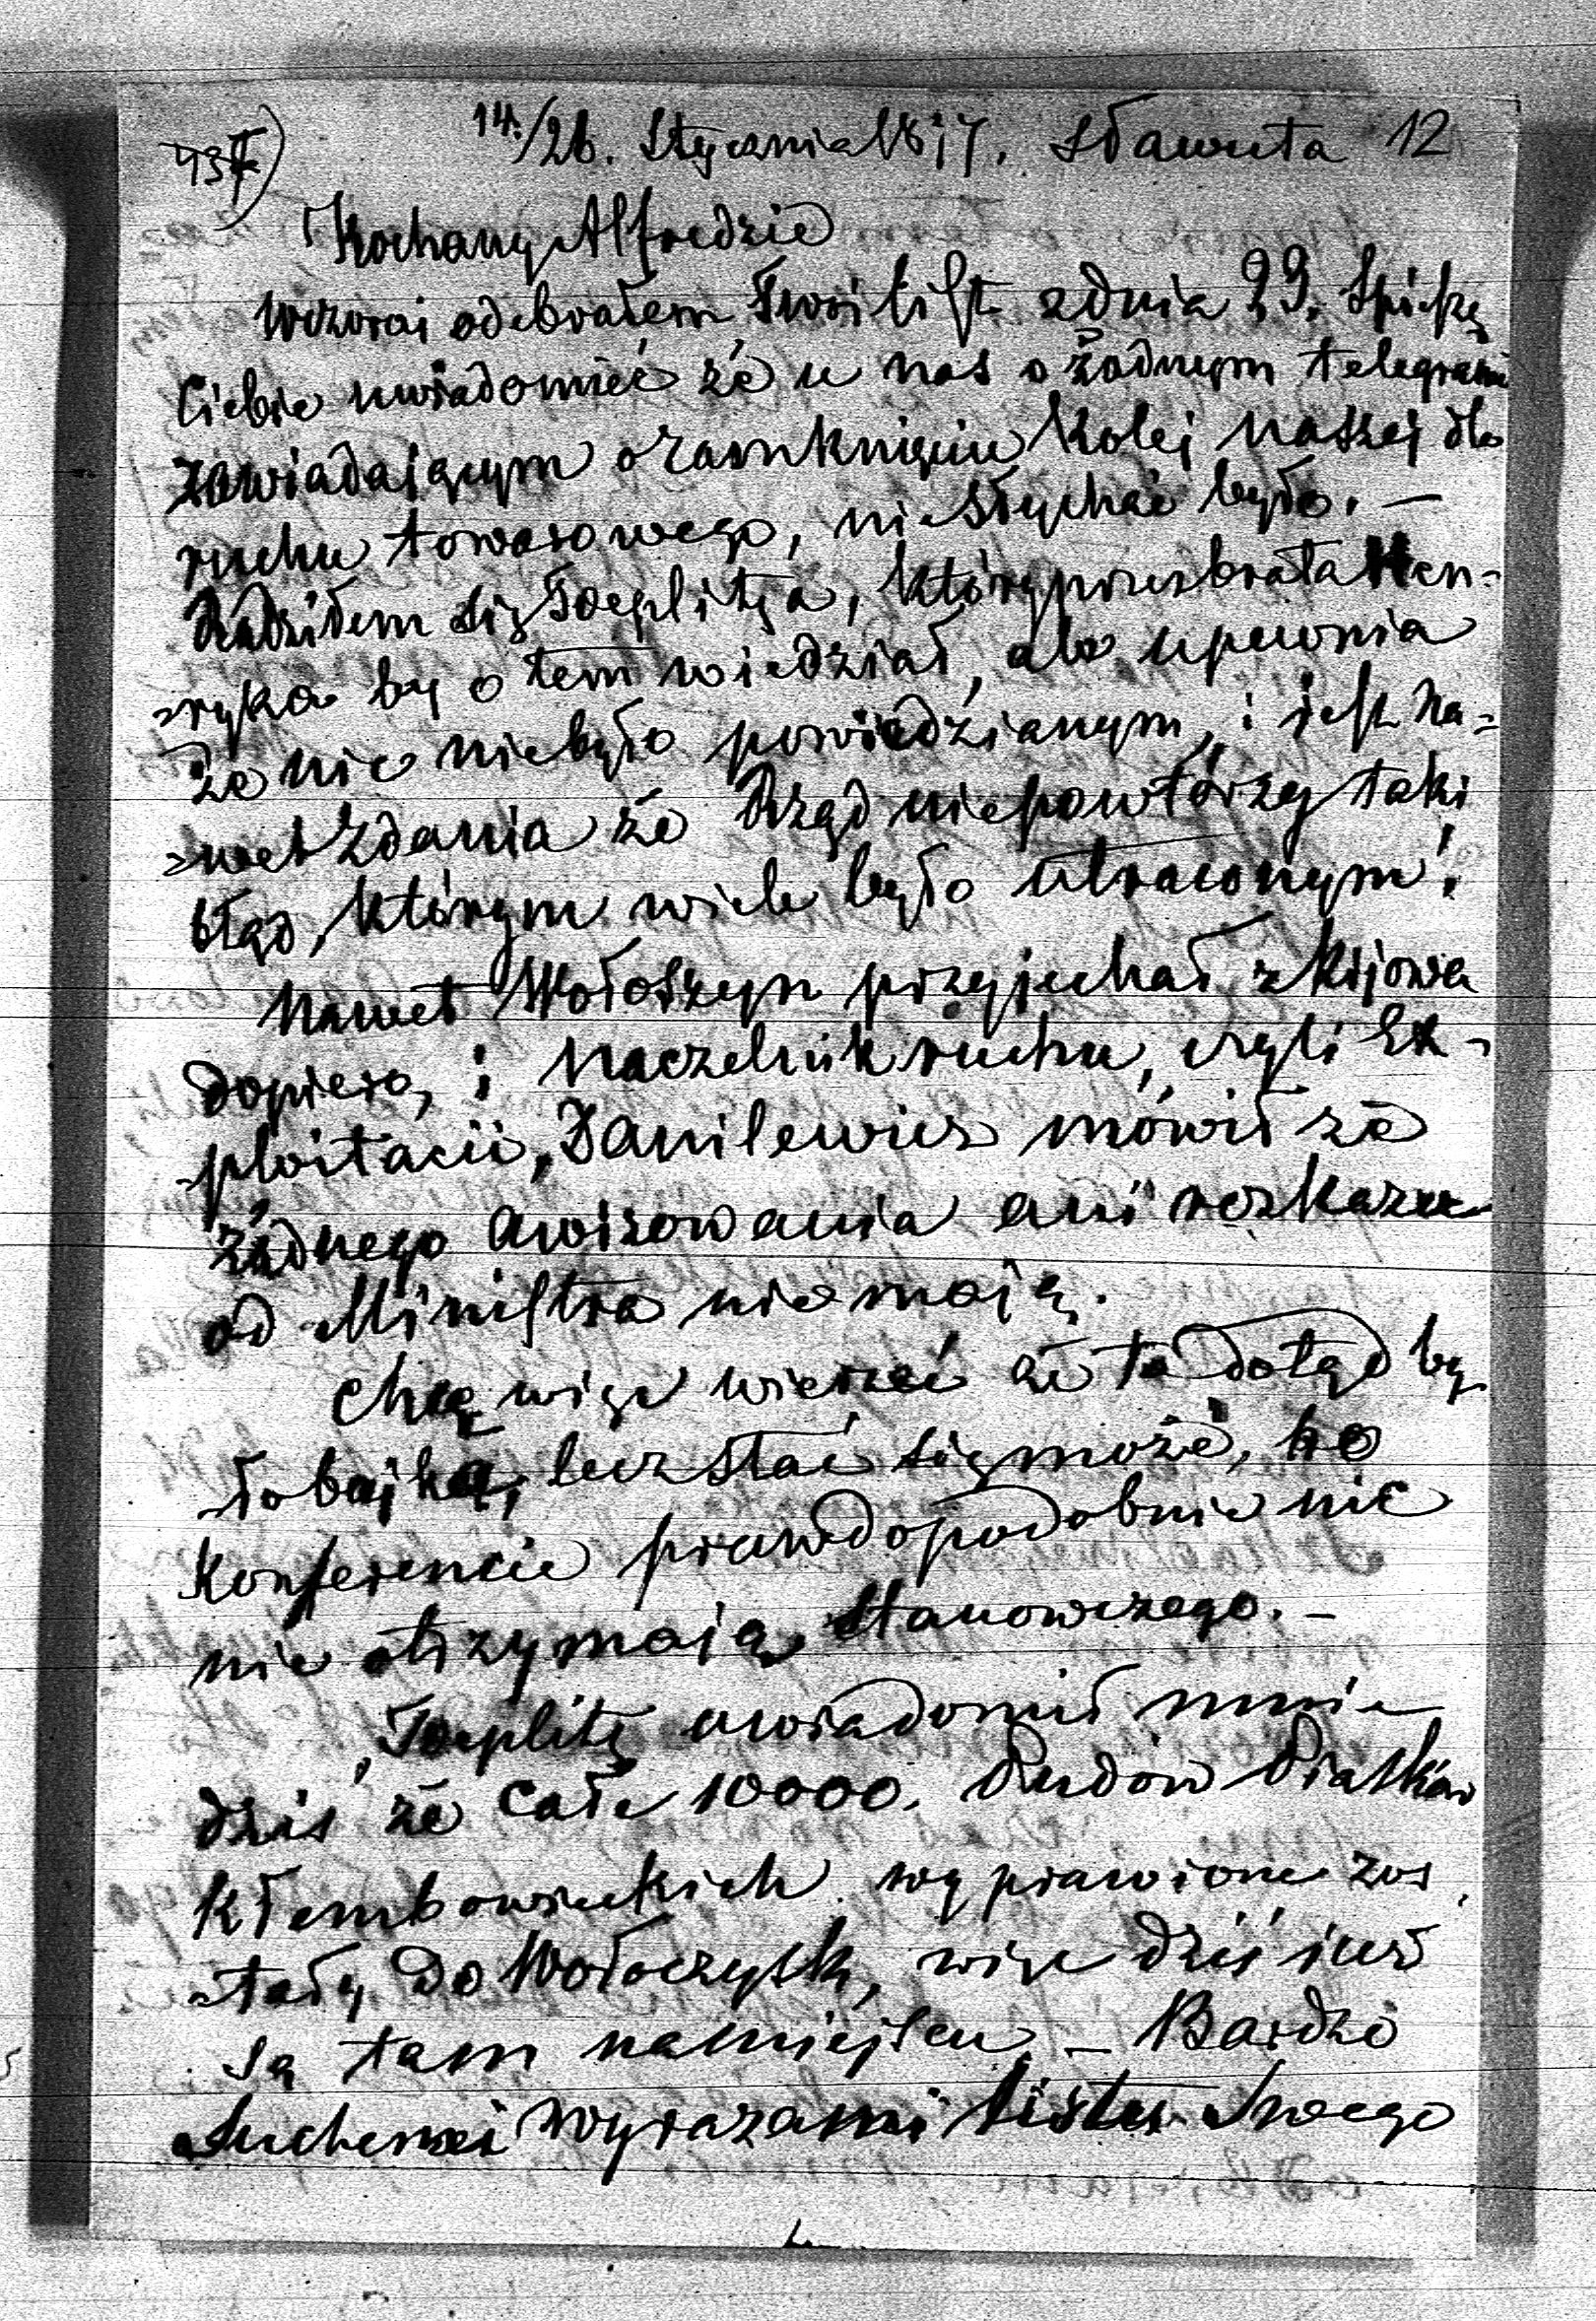 14./26. Stycznia 1877. Sławuta 12
Kochany Alfredzie
Wczorai odebrałem Twoi list z dnia 23. Spieszę
Ciebie uwiadomieć że u nas o żadnym telegrami
zawiadaiącym o zamknięciu Kolej naszej dla
ruchu towarowego, niesłychać było. –
Radziłem się Toeplitza, który przez brata Hen-
-ryka by o tem wiedział, ale upewnia
że nic niebyło powiedzianym, i jest na-
-wet zdania że Rząd niepowtórzy taki
błąd, którym wiele było utraconym!
Nawet Wołoszyn przyjechał z Kijowa
dopiero, i Naczelnik ruchu, czyli Ex-
-ploitacii, Danilewicz mówił że
żadnego awizowania ani rozkazu
od Ministra niemaią.
Chcę więc wierzeć że to dotąd by
-ło bajką, lecz stać się może, bo
Konferencie prawdopodobnie nic
nie otrzymaią, stanowczego. –
Toeplitz uwiadomił mnie
dziś że całe 10000. Pudów Piasków
Kłembowieckich wyprawione zos
-tały do Wołoczysk, więc dziś iuż
są tam namiejscu – Bardzo
Suchemi wyrazami Listu Swego